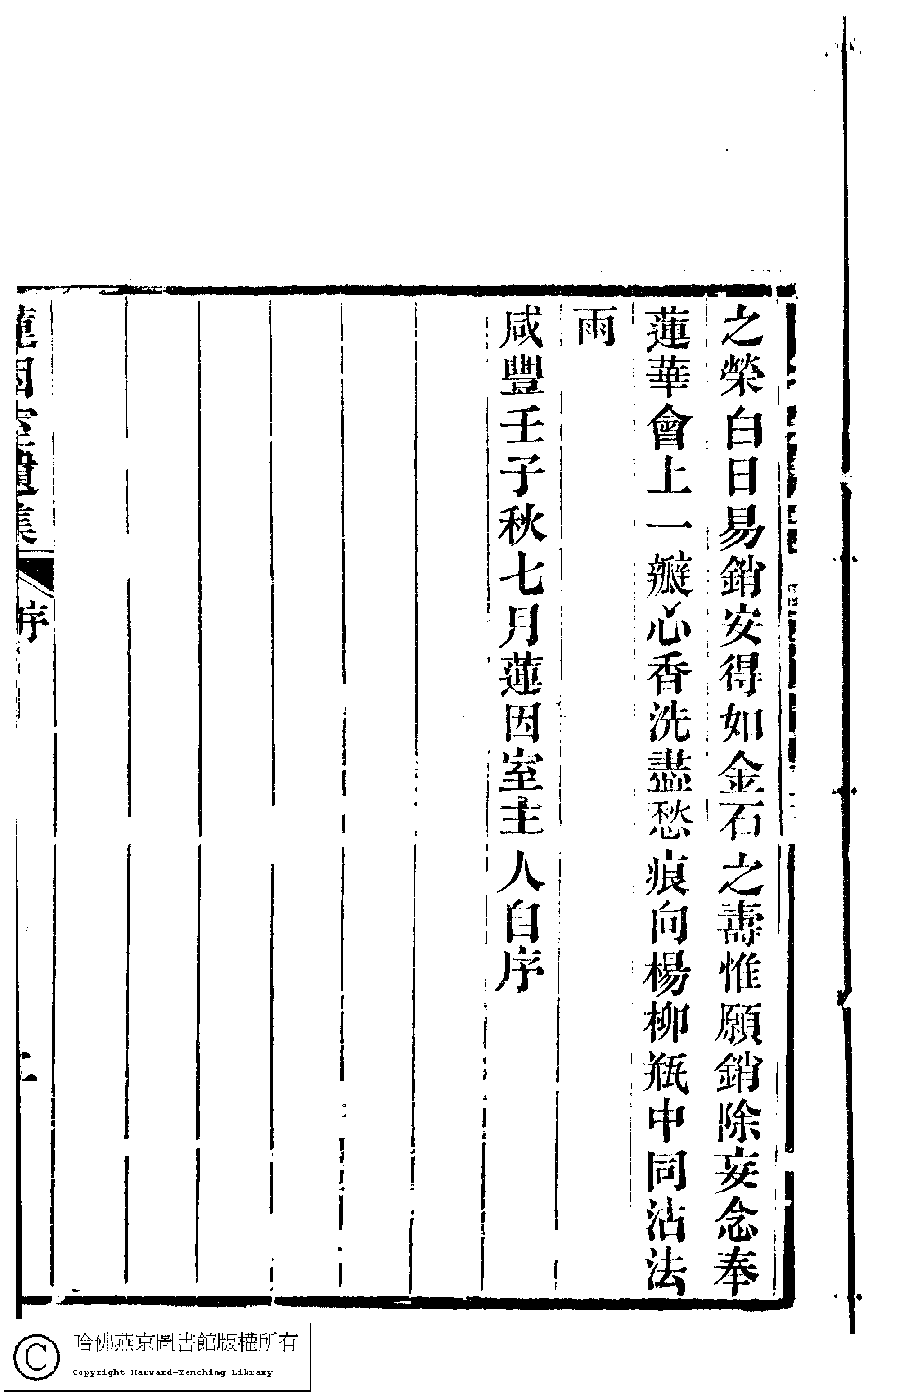 之榮白日易銷安得如金石之壽惟願銷除妄念奉
蓮華會上一瓣心香洗盡愁痕向楊柳瓶中同沾法
雨
咸豐壬子秋七月蓮因室主人自序
蓮因室遺集
序
二
哈佛燕京圖書館版權所有
Copyright Harvard-Yenching Library